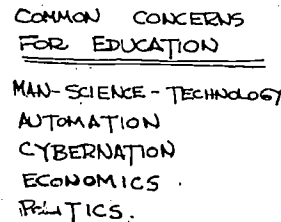 COMMON CONCERNS
FOR EDUCATION
MAN-SCIENCE-TECHNOLOGY
AUTOMATION
CYBERNATION
ECONOMICS.
POLITICS.